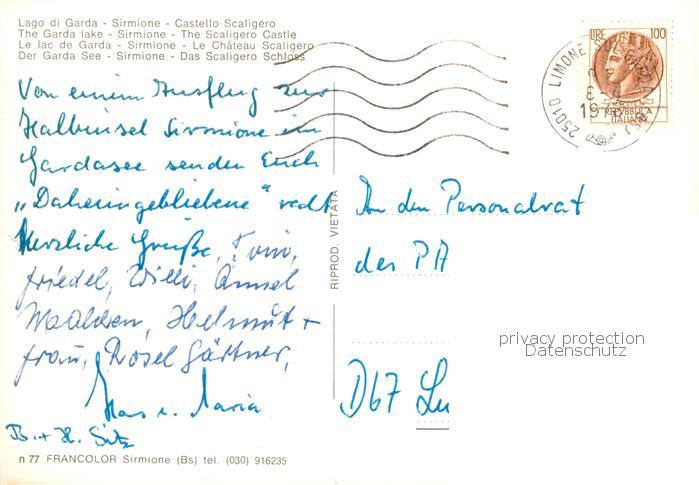 Lago di Garda - Sirmione - Castello Scaligero
The Garda lake - Sirmione - The Scaligero Castle
Le lac de Garda - Sirmione - Le Château Scaligero
Der Garda See - Sirmione - Das Scaligero Schloss
Von einem Ausflug zur
Halbinsel Sirmione im
Gardasee senden Euch
„Daheimgebliebene“ recht
herzliche Grüße, Toni,
Friedel, Willi, Ännsel
Helmut +
Frau, Rosel Gärtner,
Hans u. Maria
B. + H. Sitz
n 77 FRANCOLOR Sirmione (Bs) tel. (030) 916235
RIPROD. VIETATA
LIRE 100
REPUBBLICA
ITALIANA
25010 LIMONE SUL GARDA
19
(BS)
An den Personalrat
des PA
D67 Lu
privacy protection
Datenschutz